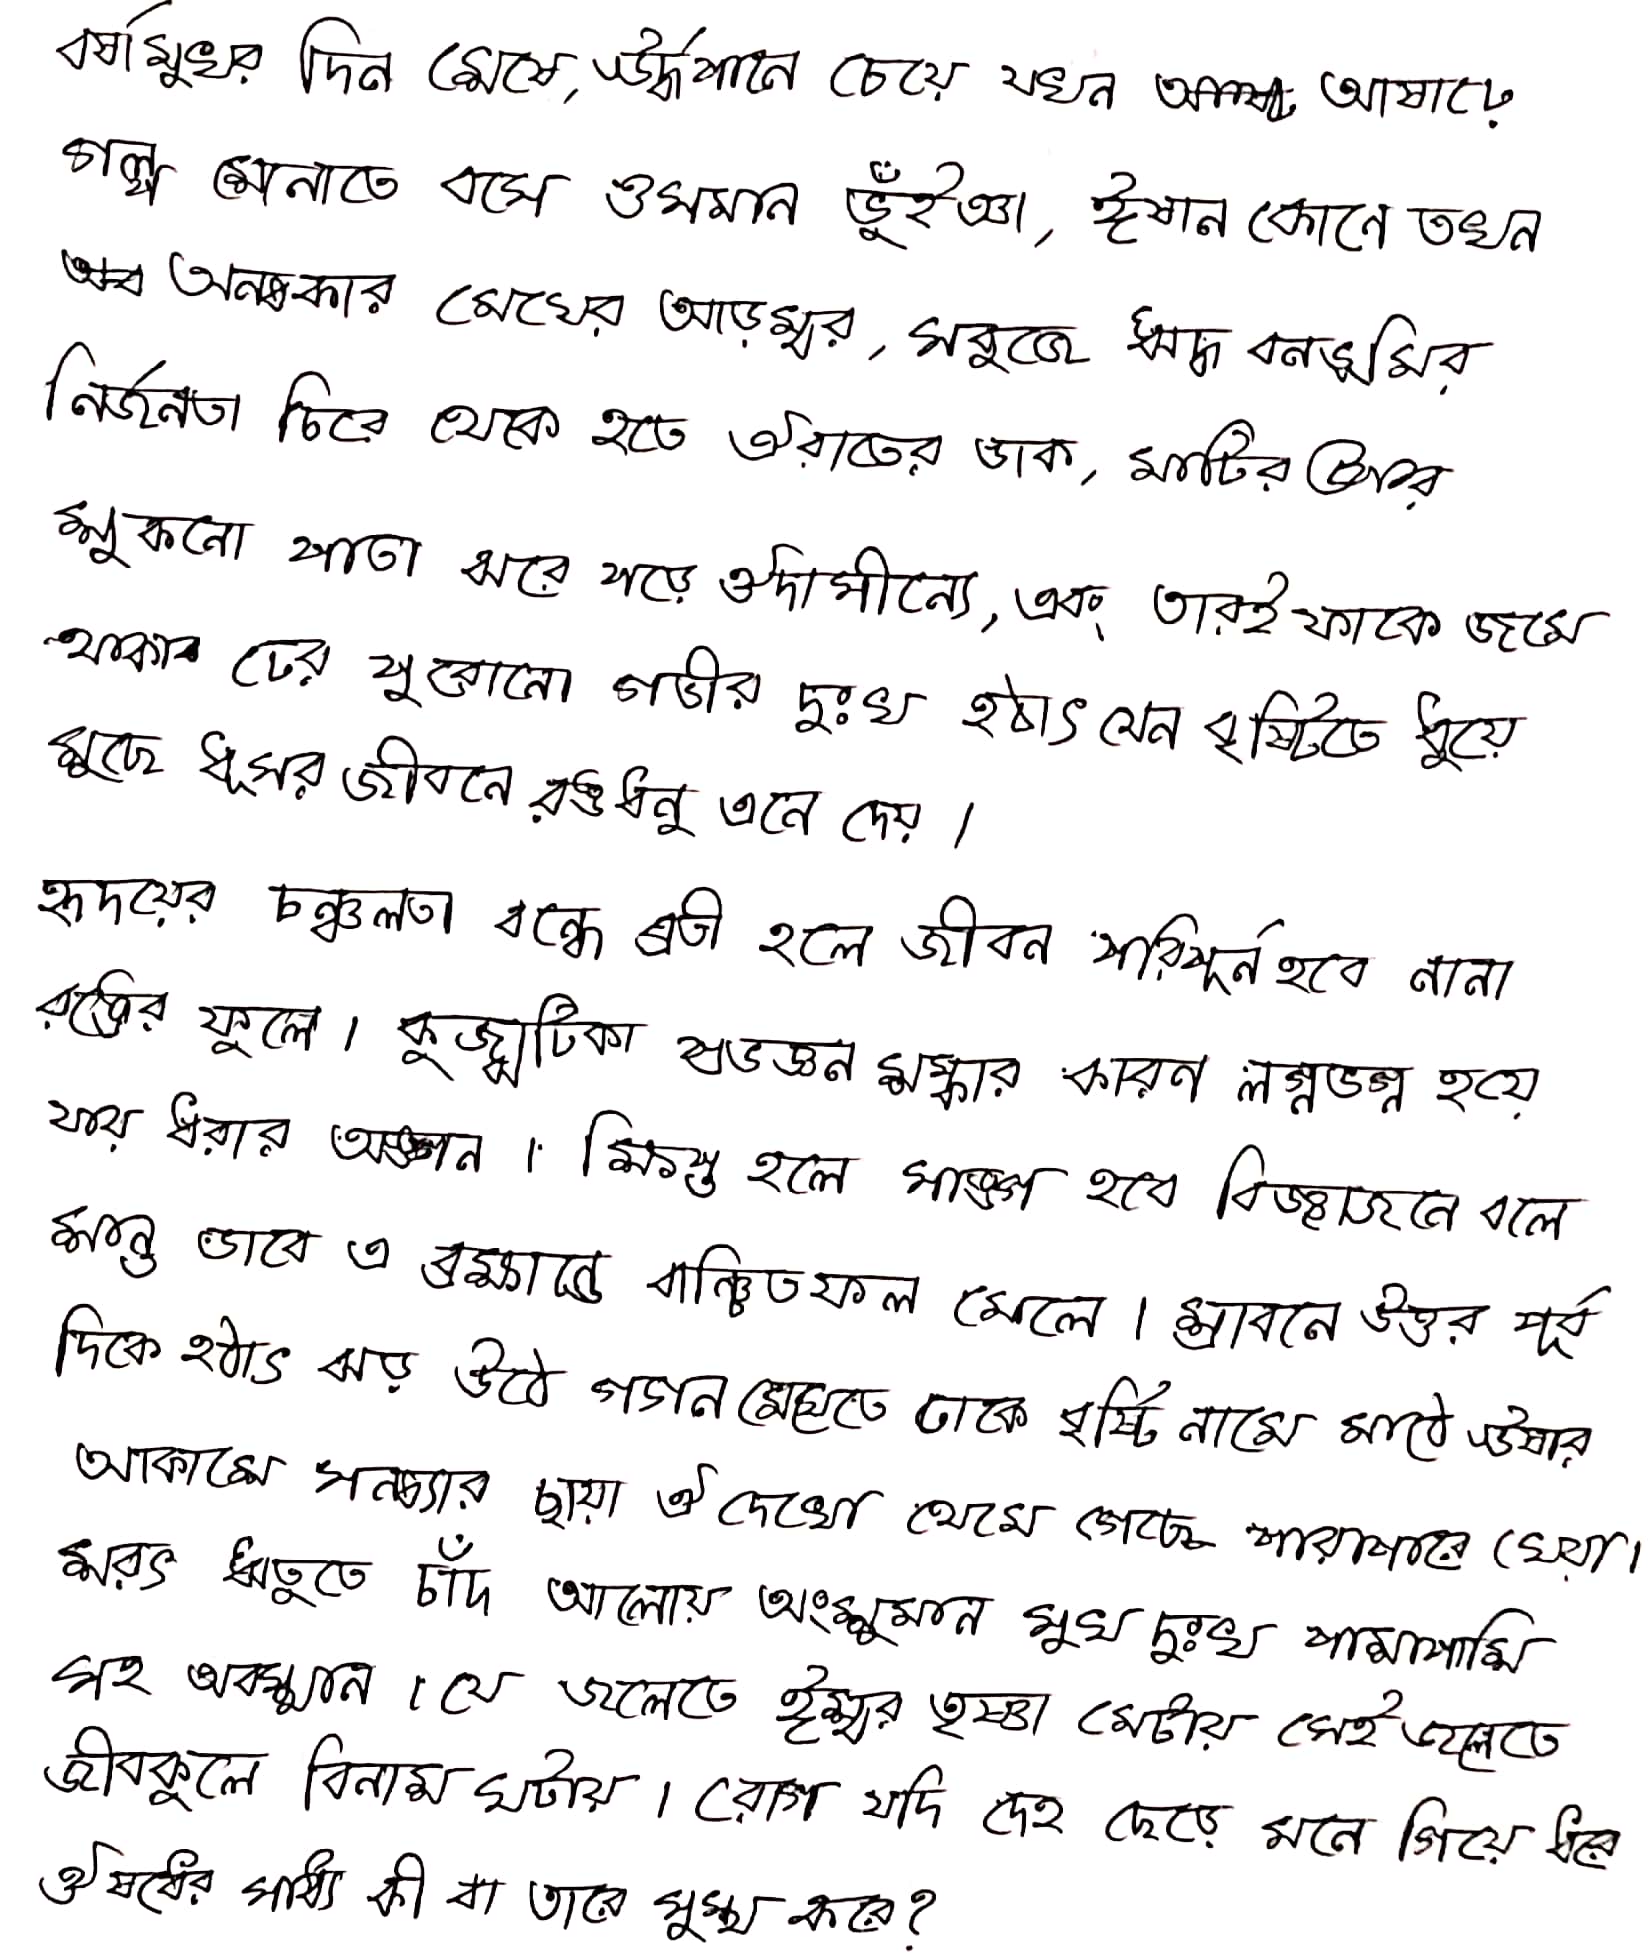 বর্ষামুখর দিন শেষে, ঊর্দ্ধপানে চেয়ে যখন আষাঢ়ে
গল্প শোনাতে বসে ওসমান ভুঁইঞা, ঈষান কোনে তখন
অনন্ধকার মেঘের আড়ম্বর, সবুজে ঋদ্ধ বনভূমির
নির্জনতা চিরে থেকে হতে ঐরাতের ডাক, মাটির উপর
শুকনো পাতা ঝরে পড়ে ঔদাসীন্যে, এবং তারই ফাকে জমে
থাকা ঢের পুরোনো গভীর দুঃখ হঠাৎ যেন বৃষ্টিতে ধুয়ে
মুছে ধূসর জীবনে রঙধনু এনে দেয়।
হৃদয়ের চঞ্চলতা বন্ধে ব্রতী হলে জীবন পরিপূর্ন হবে নানা
রঙের ফুলে। কুজ্ঝটিকা প্রভঞ্জন শঙ্কার কারণ লণ্ডভণ্ড হয়ে
যায় ধরার অঙ্গন। ক্ষিপ্ত হলে সাঙ্গ হবে বিজ্ঞজনে বলে
শান্ত ভাবে এ ব্রহ্মান্ডে বাঞ্ছিতফল মেলে। শ্রাবনে উত্তর পূর্ব
দিকে হঠাৎ ঝড় উঠে গগন মেঘেতে ঢাকে বৃষ্টি নামে মাঠে ঊষার
আকাশে সন্ধ্যার ছায়া ঐ দেখো থেমে গেছে পারাপারে খেয়া।
শরৎ ঋতুতে চাঁদ আলোয় অংশুমান সুখ দুঃখ পাশাপাশি
সহ অবস্থান। যে জলেতে ঈশ্বর তৃষ্ণা মেটায় সেই জলেতে
জীবকুলে বিনাশ ঘটায়। রোগ যদি দেহ ছেড়ে মনে গিয়ে ধরে
ঔষধের সাধ্য কী বা তারে সুস্থ করে?